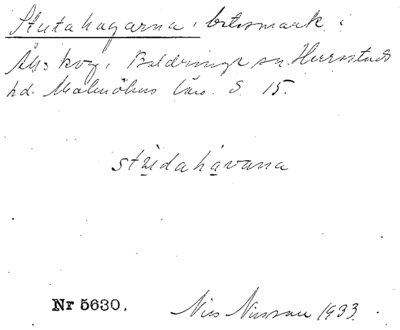 Stutahagarna, betesmark i
Baldringe sn. Herrestads
hd. Malmöhus län. S 15.
stʉdahavana
Nr 5630. Nils Nilsson 1933.